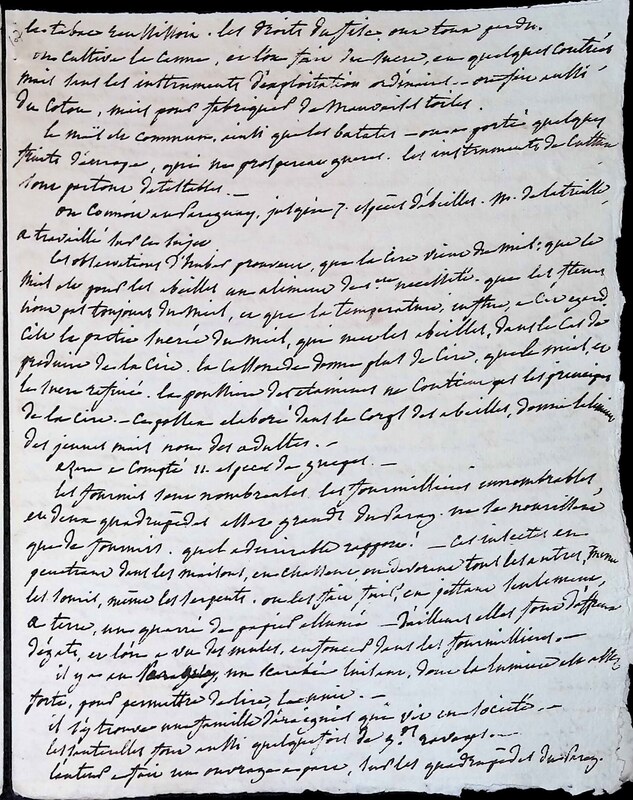 le tabac . les droits du fisc ont tout perdu.
on cultive la canne, et l'on fait du sucre, en quelques contrées
mais sans les instruments d'exploitation ordinaires – on file aussi
du coton, mais pour fabriquer de mauvaises toiles.
le mil est commun, ainsi que les batates – on a porté quelques
fruits d'europe, qui ne prosperent gueres. les instruments de culture
sont partout detestables. –
on connoit au Paraguay, jusqu'à 7. espèces d'abeilles. m. de latreille
a travaillé sur ce sujet
les observations d'huber prouvent, que la cire vient du miel; que le
miel est pour les abeilles un aliment de 1ere necessité. que les fleurs
n'ont pas toujours du miel, et que la temperature, influe, a cet egard.
c'est la partie sucrée du miel, qui met les abeilles, dans le cas de
produire de la cire. la cassonade donne plus de cire, que le miel, et
le sucre rafiné. la poussiere des etamines ne contient pas les principes
de la cire. – ce pollen elaboré dans le corps des abeilles, donne
des jeunes mais non des adultes. –
azara a compté 11. espèces de guepes. –
les fourmis sont nombreuses. les fourmillieres innombrables,
et deux quadrupèdes assez grands du Parag. ne se nourrissent
que de fourmis. quel admirable rapport! – ces insectes en
penetrant dans les maisons, en chassent, ou devorent tous les autres, même
les souris, même les serpents. on les fait fuir, en jettant seulement,
a terre, un quarré de papier allumé – d'ailleurs elles font d'affreux
dégats, et l'on a vu des mules, enfoncer dans les fourmillieres. –
il y a au Paraguay, un scarabée luisant, dont la lumiere est assez
forte, pour permettre de lire la nuit. –
il s'y trouve une famille d'araignées qui vit en société. –
les sauterelles font aussi quelquefois de gds ravages. –
l'auteur a fait un ouvrage a part, sur les quadrupèdes du Parag.